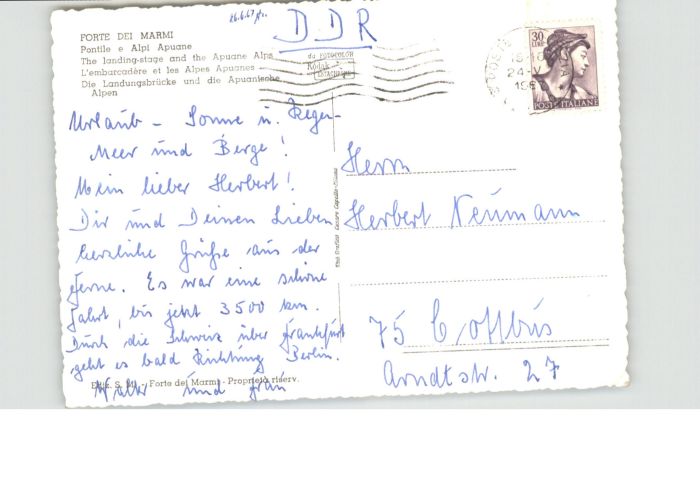 26.6.67
DDR
FORTE DEI MARMI
Pontile e Alpi Apuane
The landing-stage and the Apuane Alps
L'embarcadère et les Alpes Apuanes
Die Landungsbrücke und die Apuanische
Alpen
30
LIRE
POSTE ITALIANE
Kodak
Urlaub - Sonne u. Regen -
Meer und Berge!
Mein lieber Herbert!
Dir und Deinen Lieben
herzliche Grüße aus der
Ferne. Es war eine schöne
Fahrt, bis jetzt 3500 km.
Durch die Schweiz über Frankfurt
geht es bald Richtung Berlin.
Walter und Frau
Ediz. S. M. - Forte dei Marmi - Proprietà riserv.
Herrn
Herbert Neumann
75 Cottbus
Arndtstr. 27